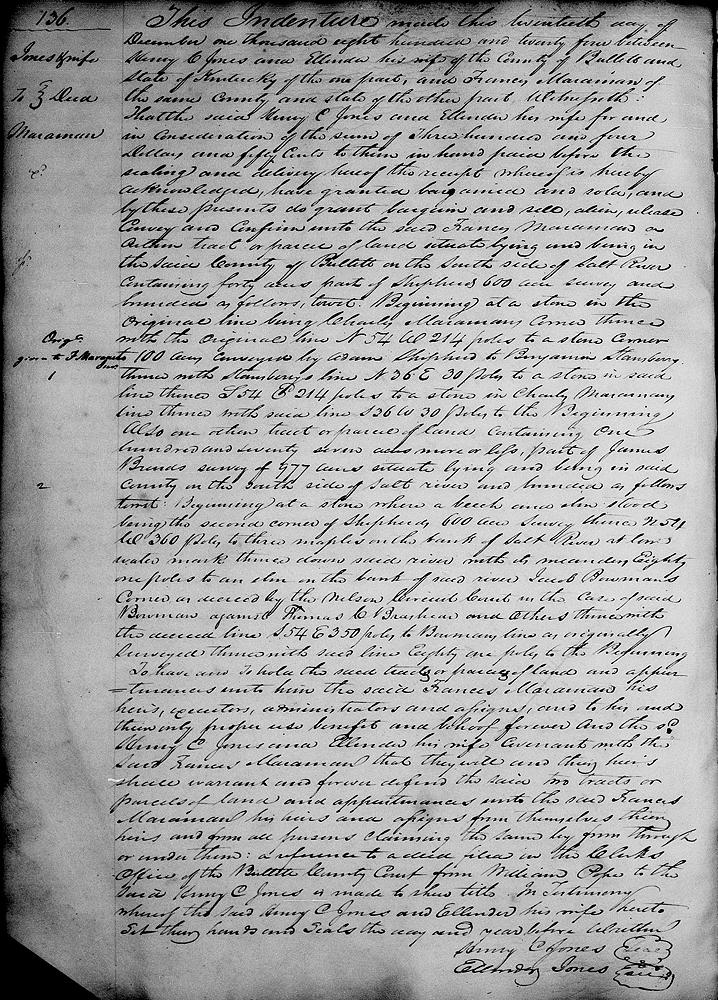 136
This Indenture made this twentieth day of
December one thousand eight hundred and twenty five between
Henry C Jones and Ellender his wife of the County of Bullitt and
State of Kentucky of the one part, and Francis Maraman of
the same County and state of the other part, Witnesseth:
That the said Henry C Jones and Ellender his wife for and
in Consideration of the sum of Three hundred and four
Dollars and fifty Cents to them in hand paid before the
sealing and delivery hereof the receipt whereof is hereby
acknowledged, have granted bargained and sold, and
by these presents do grant bargain and sell, alien, release
Convey and Confirm unto the said Francis Maraman a
Certain tract or parcel of land situate lying and being in
the said County of Bullitt on the South side of Salt River
Containing forty acres part of Shepherds 600 acre survey and
bounded as follows, towit: Beginning at a stone in the
Original line being Charles Maramans Corner thence
with the Original line N 54 W 214 poles to a stone Corner
to 100 acres Conveyed by Adam Shepherd to Benjamin Stansbury
thence with Stansberys line N 36 E 30 poles to a stone in said
line thence S 54 E 214 poles to a stone in Charles Maramans
line thence with said line S 36 W 30 poles to the Beginning
Also one other tract or parcel of land Containing One
hundred and seventy seven acres more or less, part of James
Brands survey of 977 acres situate lying and being in said
County on the South side of Salt river and bounded as follows
towit: Beginning at a stone where a beech and elm stood
being the second corner of Shepherds 600 acre Survey thence N 54
W 360 poles to three maples on the bank of Salt River at low
water mark thence down said river with its meanders Eighty
one poles to an elm on the bank of said river Jacob Bowmans
Corner as decreed by the Nelson Circuit Court in the Case of said
Bowman against Thomas C Brashear and Others thence with
the decreed line S 54 E 350 poles to Bowmans line as originally
Surveyed thence with said line Eighty one poles to the Beginning
To have and To hold the said tracts or parcels of land and appur
=tenances unto him the said Francis Maraman his
heirs, executors, administrators and assigns, and to his and
their only proper use benefit and behoof forever And the sd
Henry C Jones and Ellender his wife Covenant with the
said Francis Maraman that they will and their heirs
shall warrant and forever defend the said two tracts or
parcels of land and appurtenances unto the said Francis
Maraman his heirs and assigns from themselves their
heirs and from all persons claiming the same by from through
or under them: a reference to a deed filed in the Clerks
Office of the Bullitt County Court from William Pope to the
said Henry C Jones is made to shew title In Testimony
whereof the said Henry C Jones and Ellender his wife hereto
Set their hands and Seals the day and year before Written
Henry C Jones Seal
Ellender Jones Seal
Jones & wife
To } Deed
Maraman
Origl
given to F. Maraman
1
2